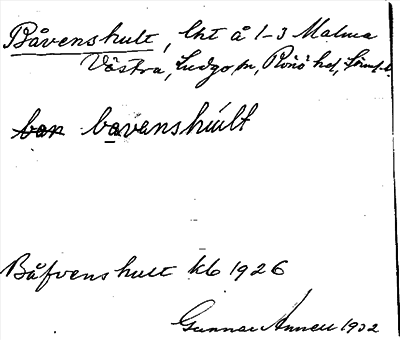 Båvenshult, lht å 1-3 Malma
Västra, Ludgo sn, Rönö hd, Sörml. l.
bavenshúlt
Båfvenshult kb 1926
Gunnar Annell 1932